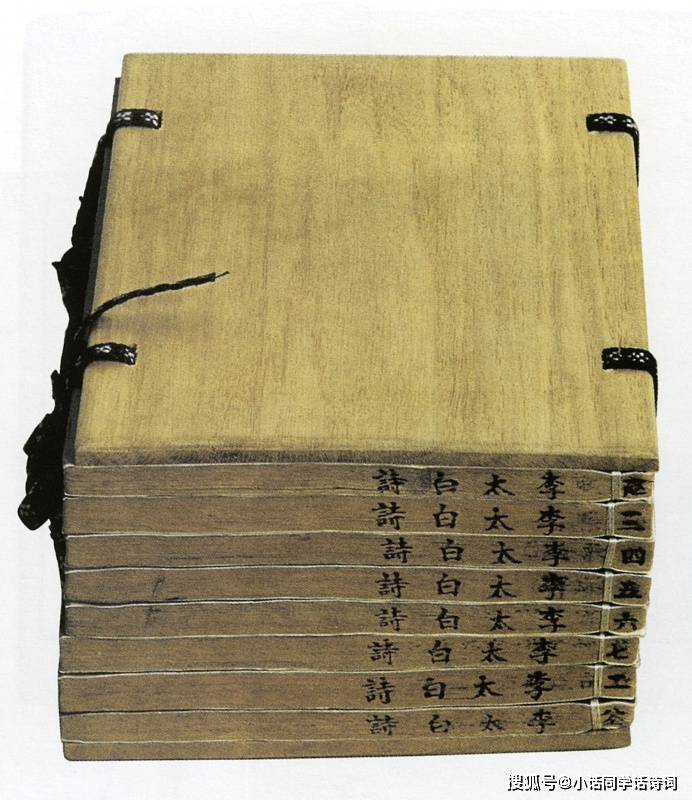 李太白詩
李太白詩
四 李太白詩
五 李太白詩
六 李太白詩
七 李太白詩
李太白詩
李太白詩
搜狐号@小话同学话诗词